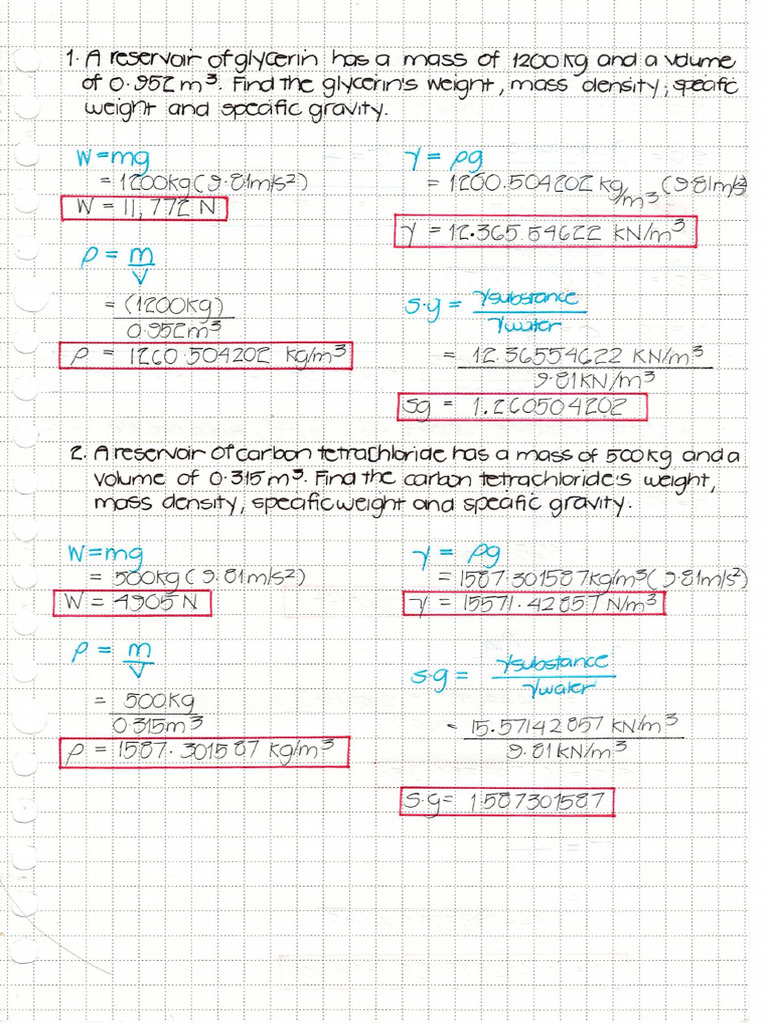 1. A reservoir of glycerin has a mass of 1200 kg and a volume
of 0.952 m³. Find the glycerin's weight, mass density, specific
weight and specific gravity.
W = mg
= 1200kg (9.81m/s²)
W = 11,772 N
ρ = m/V
= (1200kg)
0.952m³
ρ = 1260.504202 kg/m³
γ = ρg
= 1260.504202 kg/m³ (9.81m/s²)
γ = 12.365.54622 kN/m³
s.g = γsubstance
γwater
= 12.36554622 KN/m³
9.81KN/m³
sg = 1.260504202
2. A reservoir of carbon tetrachloride has a mass of 500kg and a
volume of 0.315 m³. Find the carbon tetrachloride's weight,
mass density, specific weight and specific gravity.
W = mg
= 500kg (9.81m/s²)
W = 4905 N
ρ = m/V
= 500kg
0.315m³
ρ = 1587.301587 kg/m³
γ = ρg
= 1587.301587kg/m³ (9.81m/s²)
γ = 15571.42857 N/m³
s.g = γsubstance
γwater
= 15.57142857 kN/m³
9.81kN/m³
s.g = 1.587301587